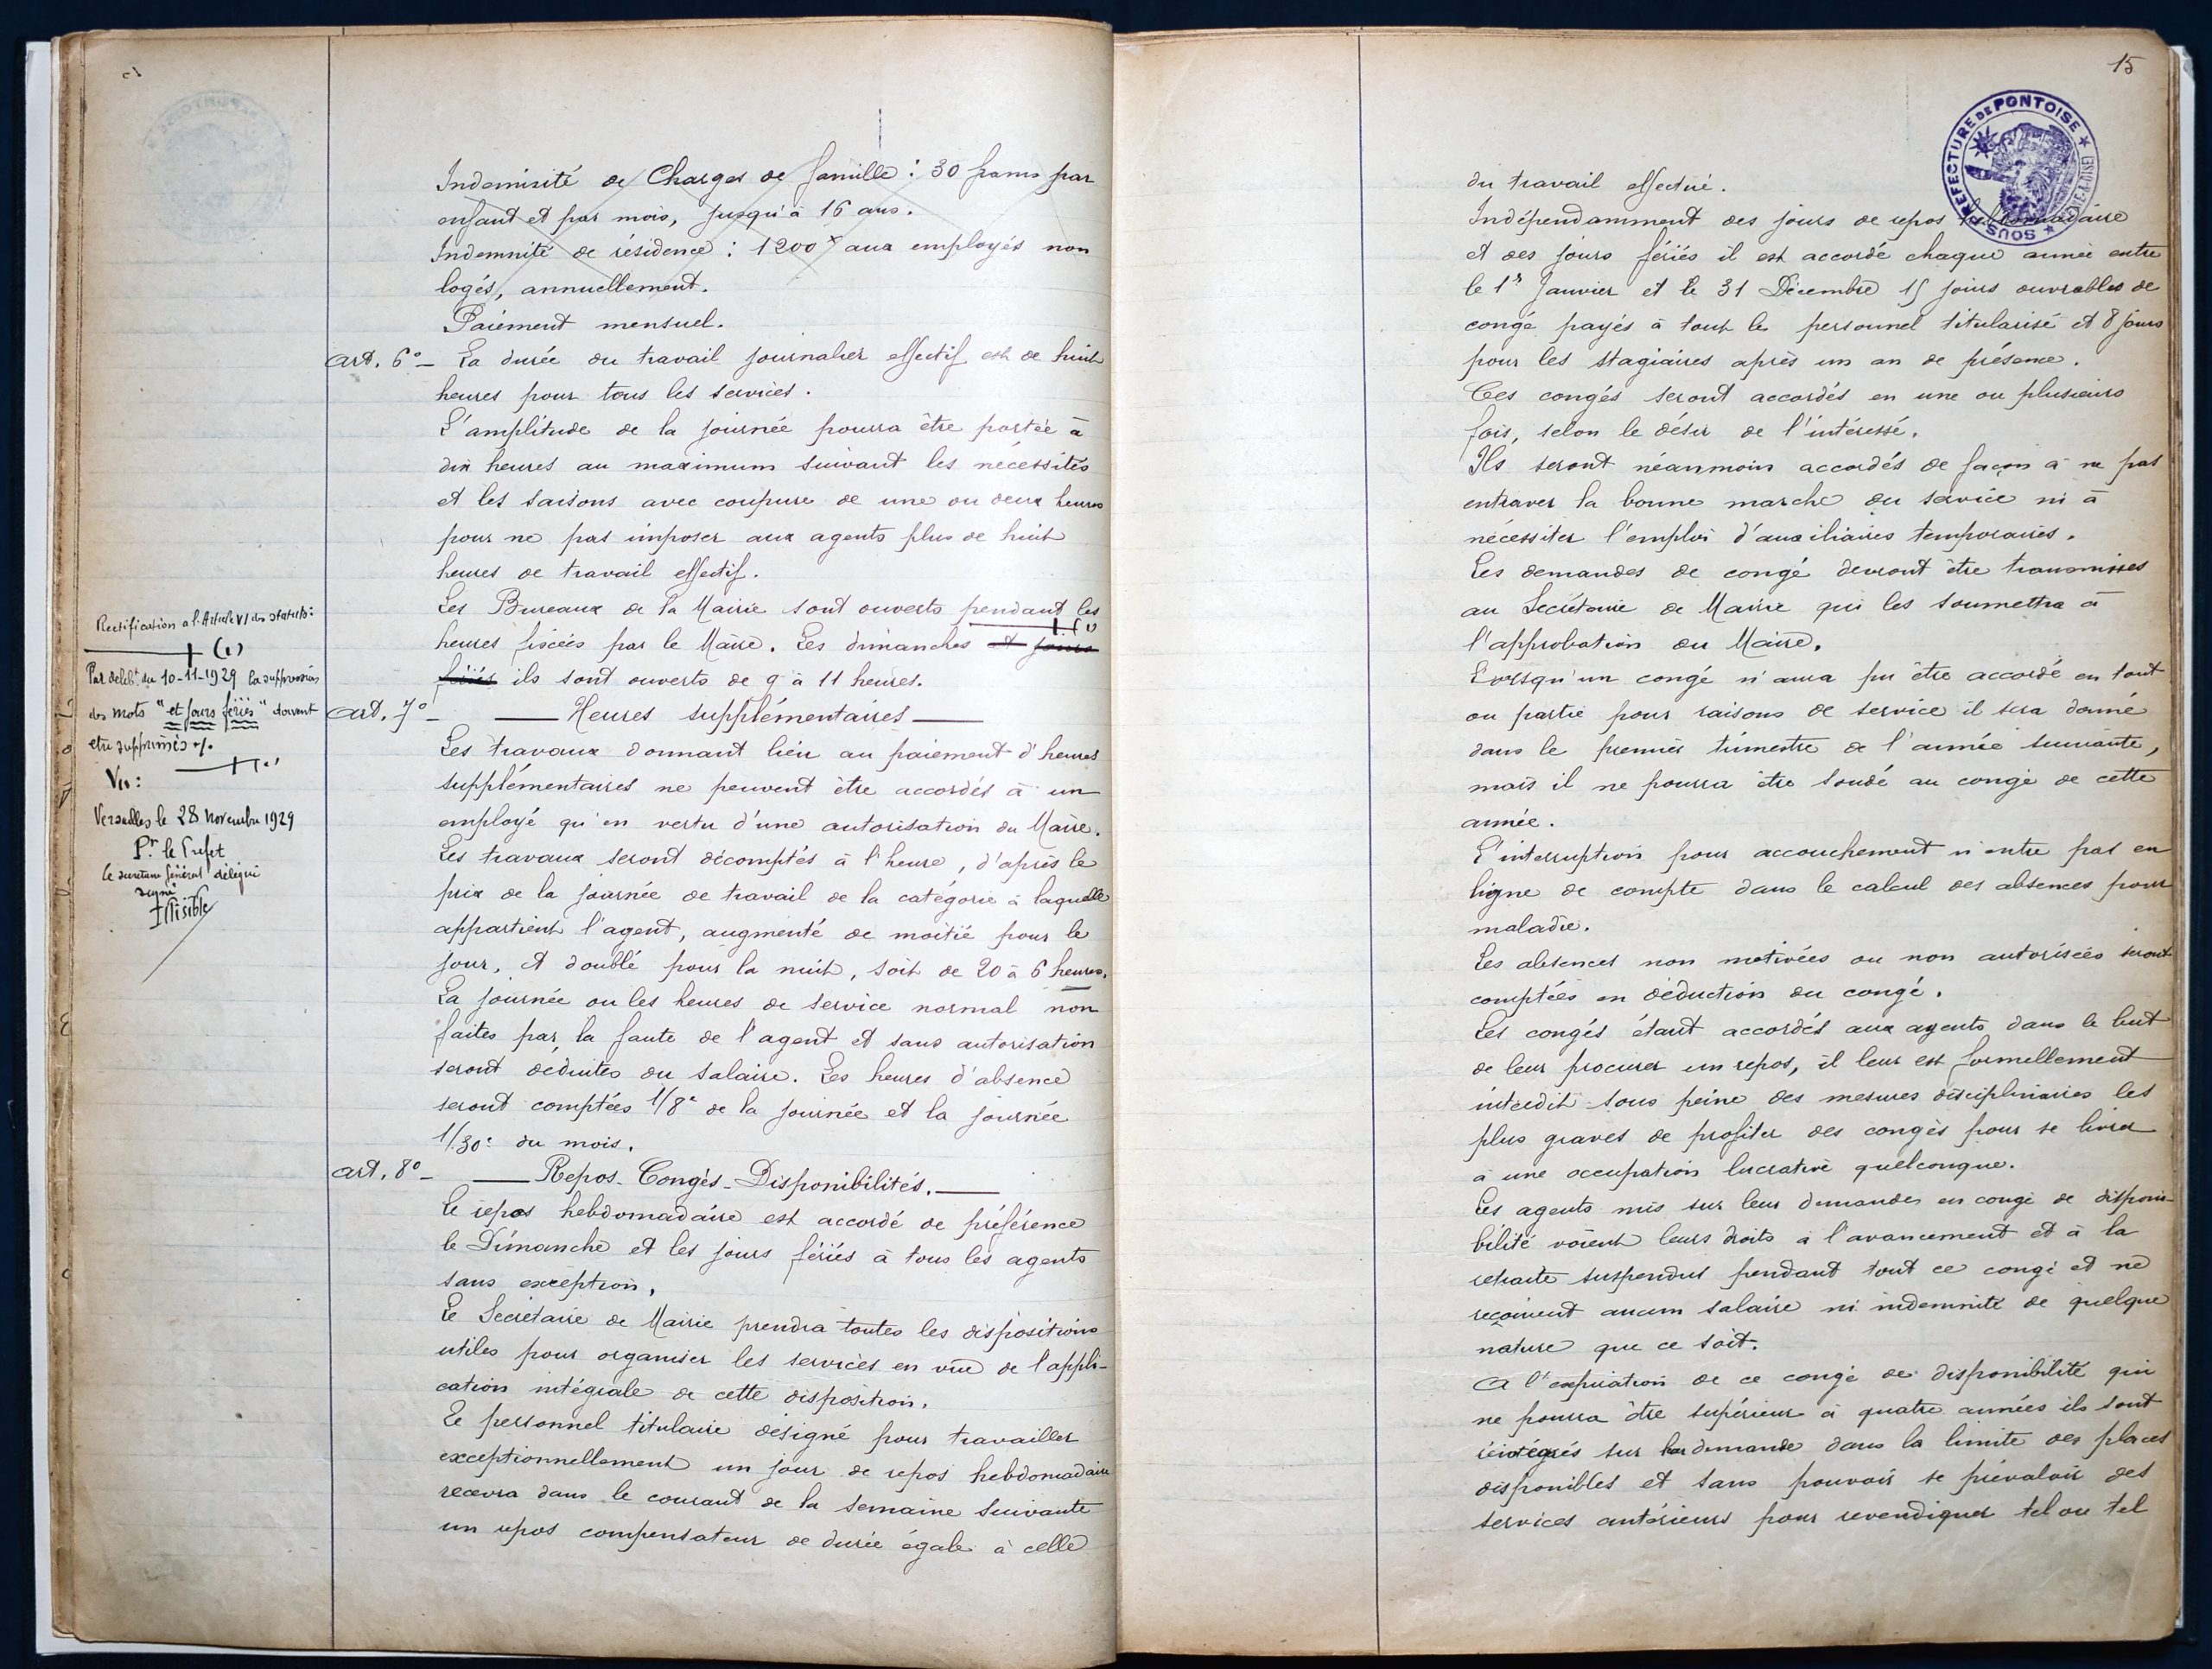 Indemnité de Charges de famille : 30 francs par
enfant et par mois, jusqu'à 16 ans.
Indemnité de résidence : 1200 aux employés non
logés, annuellement.
Paiement mensuel.
Art. 6° — La durée du travail journalier effectif est de huit
heures pour tous les services.
L'amplitude de la journée pourra être portée à
dix heures au maximum suivant les nécessités
et les saisons avec coupure de une ou deux heures
pour ne pas imposer aux agents plus de huit
heures de travail effectif.
Les Bureaux de la Mairie sont ouverts pendant les
heures fixées par le Maire. Les dimanches et jours (1)
fériés ils sont ouverts de 9 à 11 heures.
Art. 7° — Heures supplémentaires
Les travaux donnant lieu au paiement d'heures
supplémentaires ne peuvent être accordés à un
employé qu'en vertu d'une autorisation du Maire.
Les travaux seront décomptés à l'heure, d'après le
prix de la journée de travail de la catégorie à laquelle
appartient l'agent, augmenté de moitié pour le
jour, et doublé pour la nuit, soit de 20 à 6 heures.
La journée ou les heures de service normal non
faites par la faute de l'agent et sans autorisation
seront déduites du salaire. Les heures d'absence
seront comptées 1/8e de la journée et la journée
1/30e du mois.
Art. 8° — Repos - Congés - Disponibilités.
Le repos hebdomadaire est accordé de préférence
le Dimanche et les jours fériés à tous les agents
sans exception.
Le Secrétaire de Mairie prendra toutes les dispositions
utiles pour organiser les services en vue de l'appli-
cation intégrale de cette disposition.
Le personnel titulaire désigné pour travailler
exceptionnellement un jour de repos hebdomadaire
recevra dans le courant de la semaine suivante
un repos compensateur de durée égale à celle
Rectification a l'Article VI des statuts :
(1)
Par delibt du 10-11-1929 la suppression
des mots "et jours fériés" doivent
etre supprimés
Vu :
Versailles le 28 Novembre 1929
Pr. le Prefet
Le secretaire général délégué
signé
Illisible
15
SOUS-PREFECTURE DE PONTOISE
du travail effectué.
Indépendamment des jours de repos hebdomadaire
et des jours fériés il est accordé chaque année entre
le 1er Janvier et le 31 Décembre 15 jours ouvrables de
congé payés à tout le personnel titularisé et 8 jours
pour les stagiaires après un an de présence.
Ces congés seront accordés en une ou plusieurs
fois, selon le désir de l'intéressé.
Ils seront néanmoins accordés de façon à ne pas
entraver la bonne marche du service ni à
nécessiter l'emploi d'auxiliaires temporaires.
Les demandes de congé devront être transmises
au Secrétaire de Mairie qui les soumettra à
l'approbation du Maire.
Lorsqu'un congé n'aura pu être accordé en tout
ou partie pour raisons de service il sera donné
dans le premier trimestre de l'année suivante,
mais il ne pourra être soudé au congé de cette
année.
L'interruption pour accouchement n'entre pas en
ligne de compte dans le calcul des absences pour
maladie.
Les absences non motivées ou non autorisées seront
comptées en déduction du congé.
Les congés étant accordés aux agents dans le but
de leur procurer un repos, il leur est formellement
interdit sous peine des mesures disciplinaires les
plus graves de profiter des congés pour se livrer
à une occupation lucrative quelconque.
Les agents mis sur leur demande en congé de disponi-
bilité voient leurs droits à l'avancement et à la
retraite suspendus pendant tout ce congé et ne
reçoivent aucun salaire ni indemnité de quelque
nature que ce soit.
A l'expiration de ce congé de disponibilité qui
ne pourra être supérieur à quatre années ils sont
réintégrés sur leur demande dans la limite des places
disponibles et sans pouvoir se prévaloir des
services antérieurs pour revendiquer tel ou tel